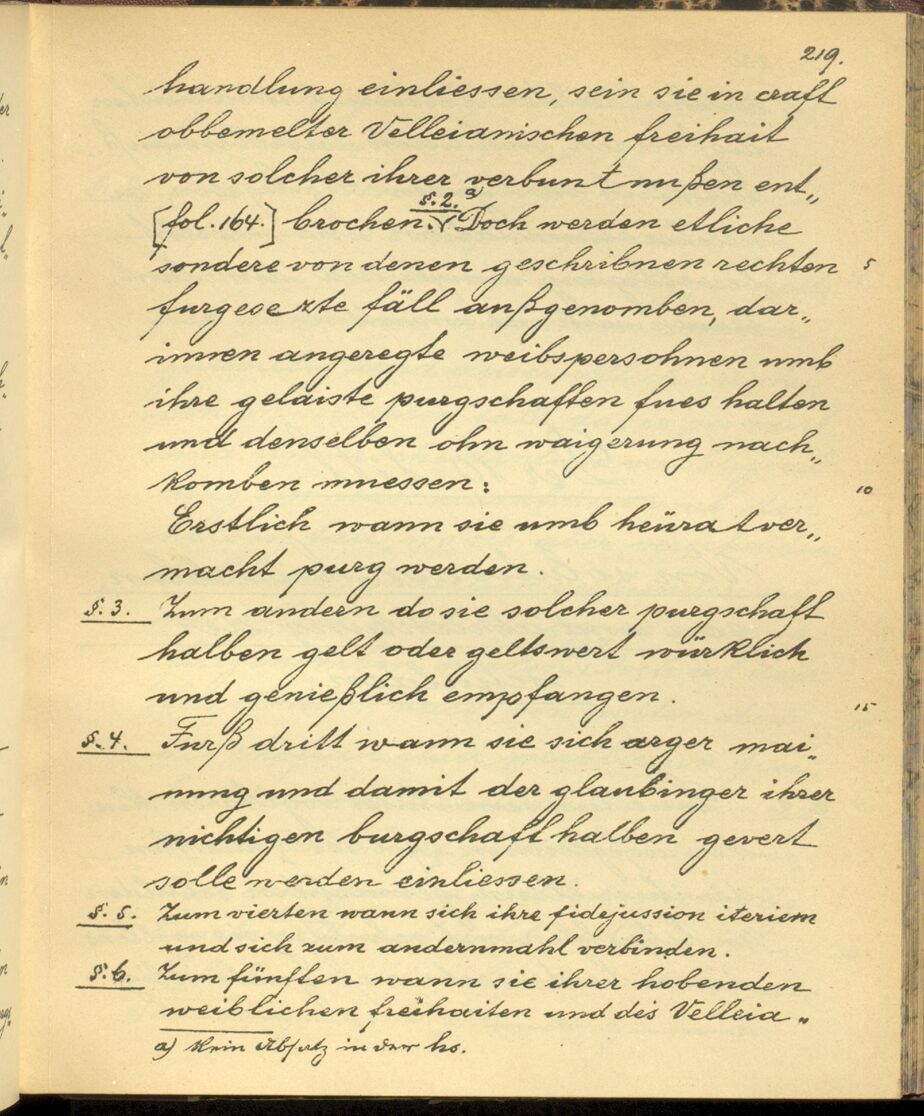 219.
handlung einliessen, sein sie in craft
obbemelter Velleianischen freihait
von solcher ihrer verbuntnußen ent„
[fol. 164.] brochen. §. 2. a) Doch werden etliche
sondere von denen geschribnen rechten 5
furgesezte fäll außgenomben, dar„
innen angeregte weibspersohnen umb
ihre gelaiste purgschaften fues halten
und denselben ohn waigerung nach„
komben muessen: 10
Erstlich wann sie umb heürat ver„
macht purg werden.
§. 3. Zum andern do sie solcher purgschaft
halben gelt oder geltswert würklich
und genießlich empfangen. 15
§. 4. Furß dritt wann sie sich arger mai„
nung und damit der glaubinger ihrer
nichtigen burgschaft halben gevert
solle werden einliessen.
§. 5. Zum vierten wann sich ihre fidejussion iteriern
und sich zum andernmahl verbinden.
§. 6. Zum fünften wann sie ihrer hobenden
weiblichen freihaiten und des Velleia„
a) Kein Absatz in der hs.